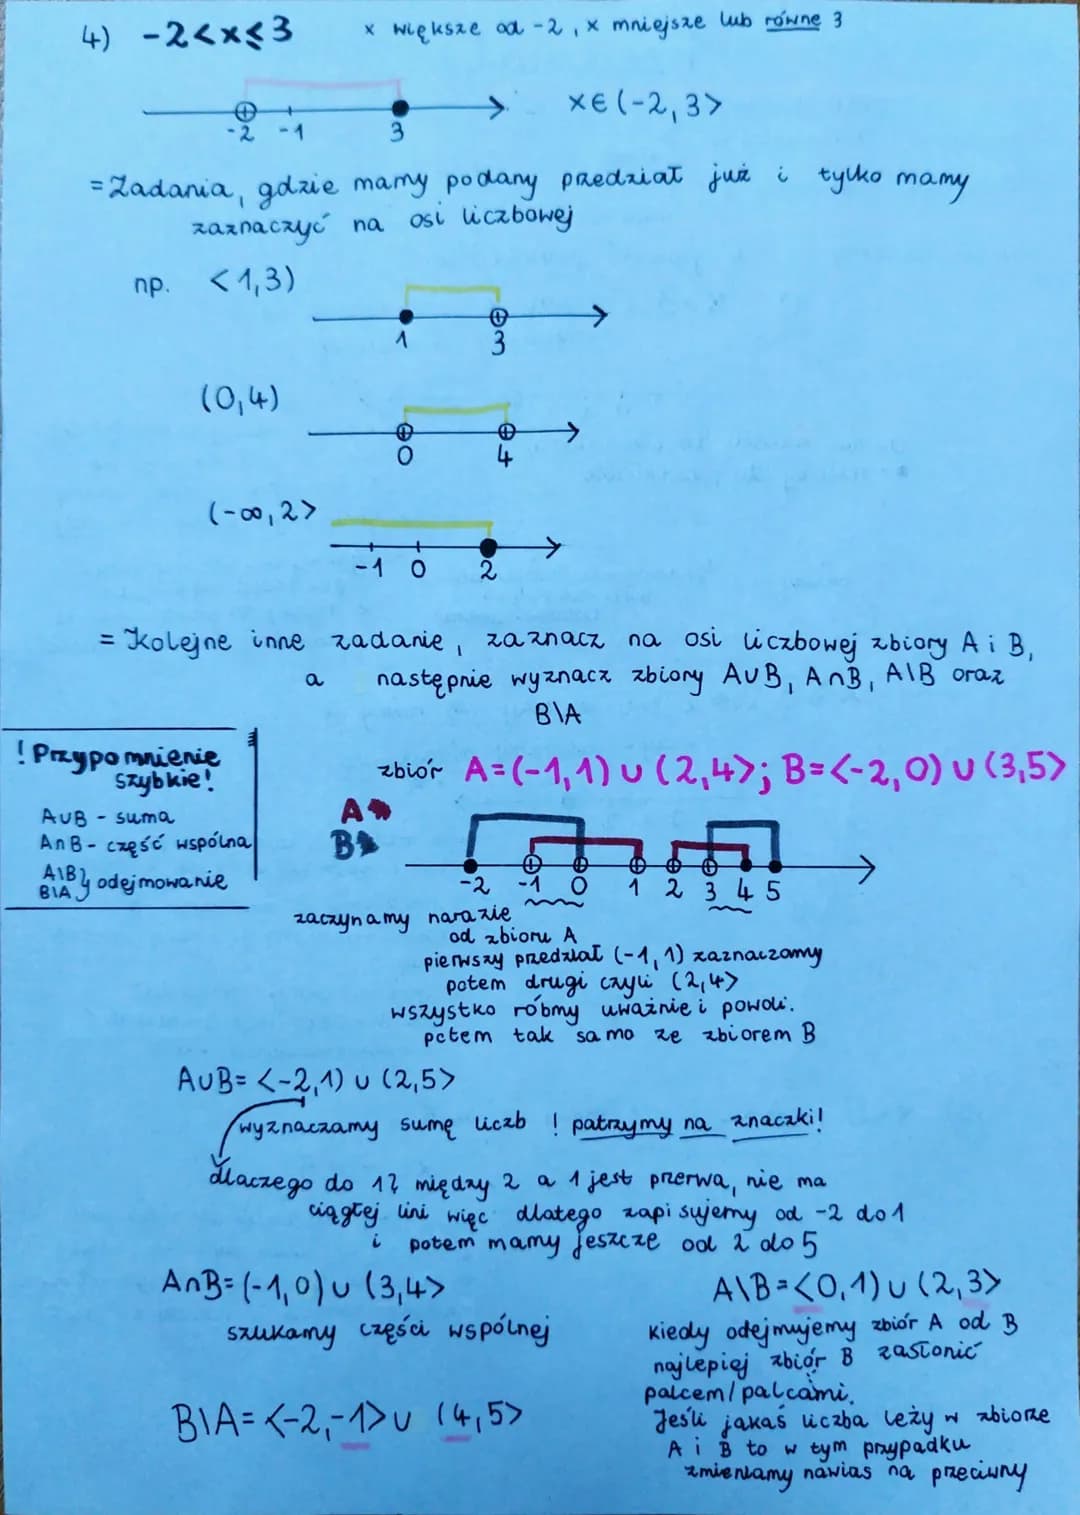 4) -2<x≤3 x większe od -2, x mniejsze lub równe 3
-2 -1 3 x∈(-2,3>
= Zadania, gdzie mamy podany przedział już i tylko mamy
zaznaczyć na osi liczbowej
np. <1,3)
1 3
(0,4)
0 4
(-∞,2>
-1 0 2
= Kolejne inne zadanie, zaznacz na osi liczbowej zbiory A i B,
a następnie wyznacz zbiory A∪B, A∩B, A\B oraz
B\A
! Przypomnienie
szybkie!
A∪B - suma
A∩B - część wspólna
A\B } odejmowanie
B\A
zbiór A=(-1,1)∪(2,4>; B=<-2,0)∪(3,5>
A
B
-2 -1 0 1 2 3 4 5
zaczynamy narazie
od zbioru A
pierwszy przedział (-1,1) zaznaczamy
potem drugi czyli (2,4>
wszystko róbmy uważnie i powoli.
potem tak samo ze zbiorem B
A∪B= <-2,1) ∪ (2,5>
wyznaczamy sumę liczb ! patrzymy na znaczki!
dlaczego do 1? między 2 a 1 jest przerwa, nie ma
ciągłej lini więc dlatego zapisujemy od -2 do 1
i potem mamy jeszcze od 2 do 5
A∩B=(-1,0)∪(3,4>
szukamy części wspólnej
A\B=<0,1)∪(2,3>
kiedy odejmujemy zbiór A od B
najlepiej zbiór B zasłonić
palcem/palcami.
Jeśli jakaś liczba leży w zbiorze
A i B to w tym przypadku
zmieniamy nawias na przeciwny
B\A=<-2,-1>∪(4,5>